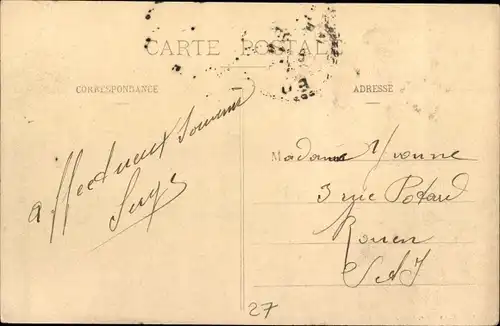 CARTE POSTALE
CORRESPONDANCE
affectueux Souvenir
ADRESSE
Madame Yvonne
3 rue Potard
Rouen
27